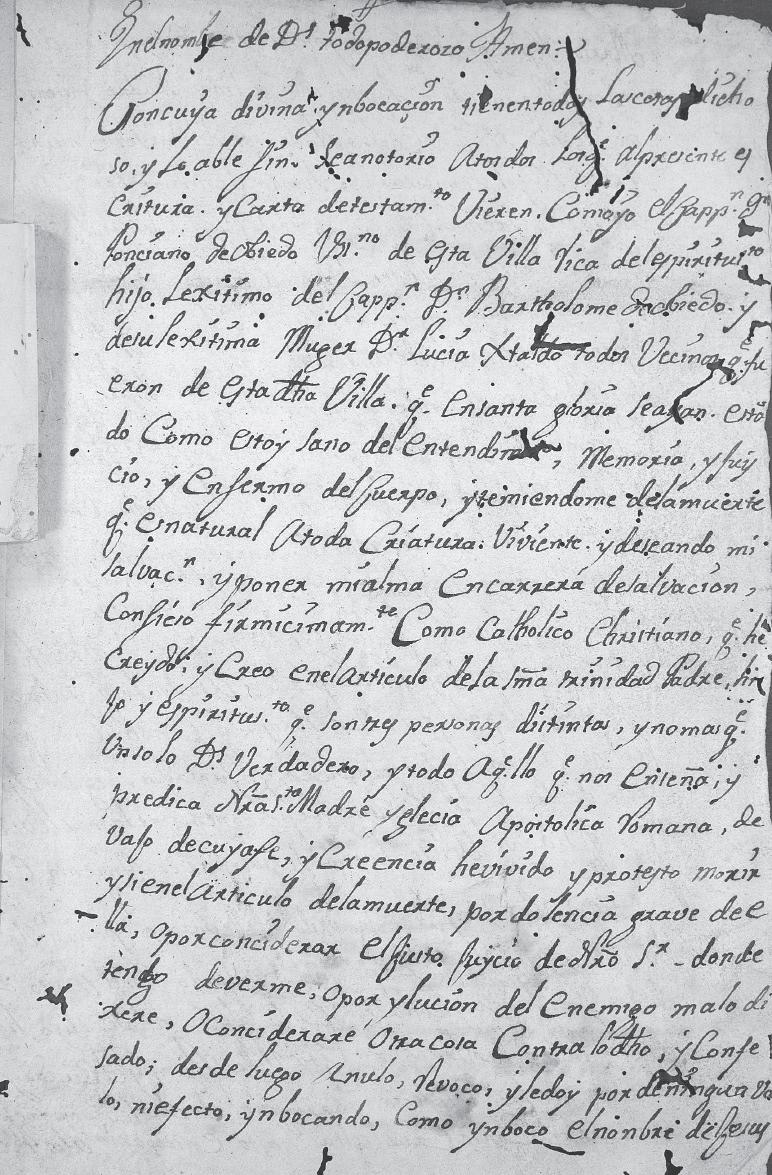 En el nombre de Ds. todopoderozo Amen.
Concuya divina ynbocacion tienentodas lascosas dicho
so, y loable fin. Seanotorio atodos los q.e alpresente es
critura. y Carta detestam.to Vieren. Comoyo el Capp.n Dn
Ponciano de obiedo Vez.no de esta Villa rica del espiritus.to
hijo Lexitimo del Capp.n D.n Bartholome de obiedo. y
desulexitima Muger D.a Lucia Xtaldo todos Vecinos q.e fu
eron de esta dha Villa. q.e ensanta gloria seayan. estan
do Como estoy sano del entendimi , Memoria, y juy
cio, y enfermo del Cuerpo, ytemiendome delamuerte
q.e esnatural atoda Criatura. Viviente. ydeseando mi
salvac.n, yponer mialma encarrera desalvacion,
Confieso firmicimam.te Como Catholico Christiano, q.e he
Creydo; y Creo enelArticulo dela sma trinidad Padre, hi
jo y espiritus.to q.e sontres personas distintas, ynomas q.e
Unsolo D.s Verdadero, ytodo Aq.llo q.e nos enseña; y
predica Nra S.ta Madre yglecia Apostolica romana, de
vajo decuyafe, y Creencia hevivido yprotesto morir
ysienelArticulo delamuerte, pordolencia grave dee
lla, oporconciderar elJusto Juycio dedNro S.r donde
tengo deverme, opor ylucion del enemigo malo di
xere, o Conciderare otracosa Contra lodho, yConfe
sado; desde luego Anulo, revoco, yledoy por deningun Va
lo, niefecto, ynbocando, Como ynboco elnonbre deJesus